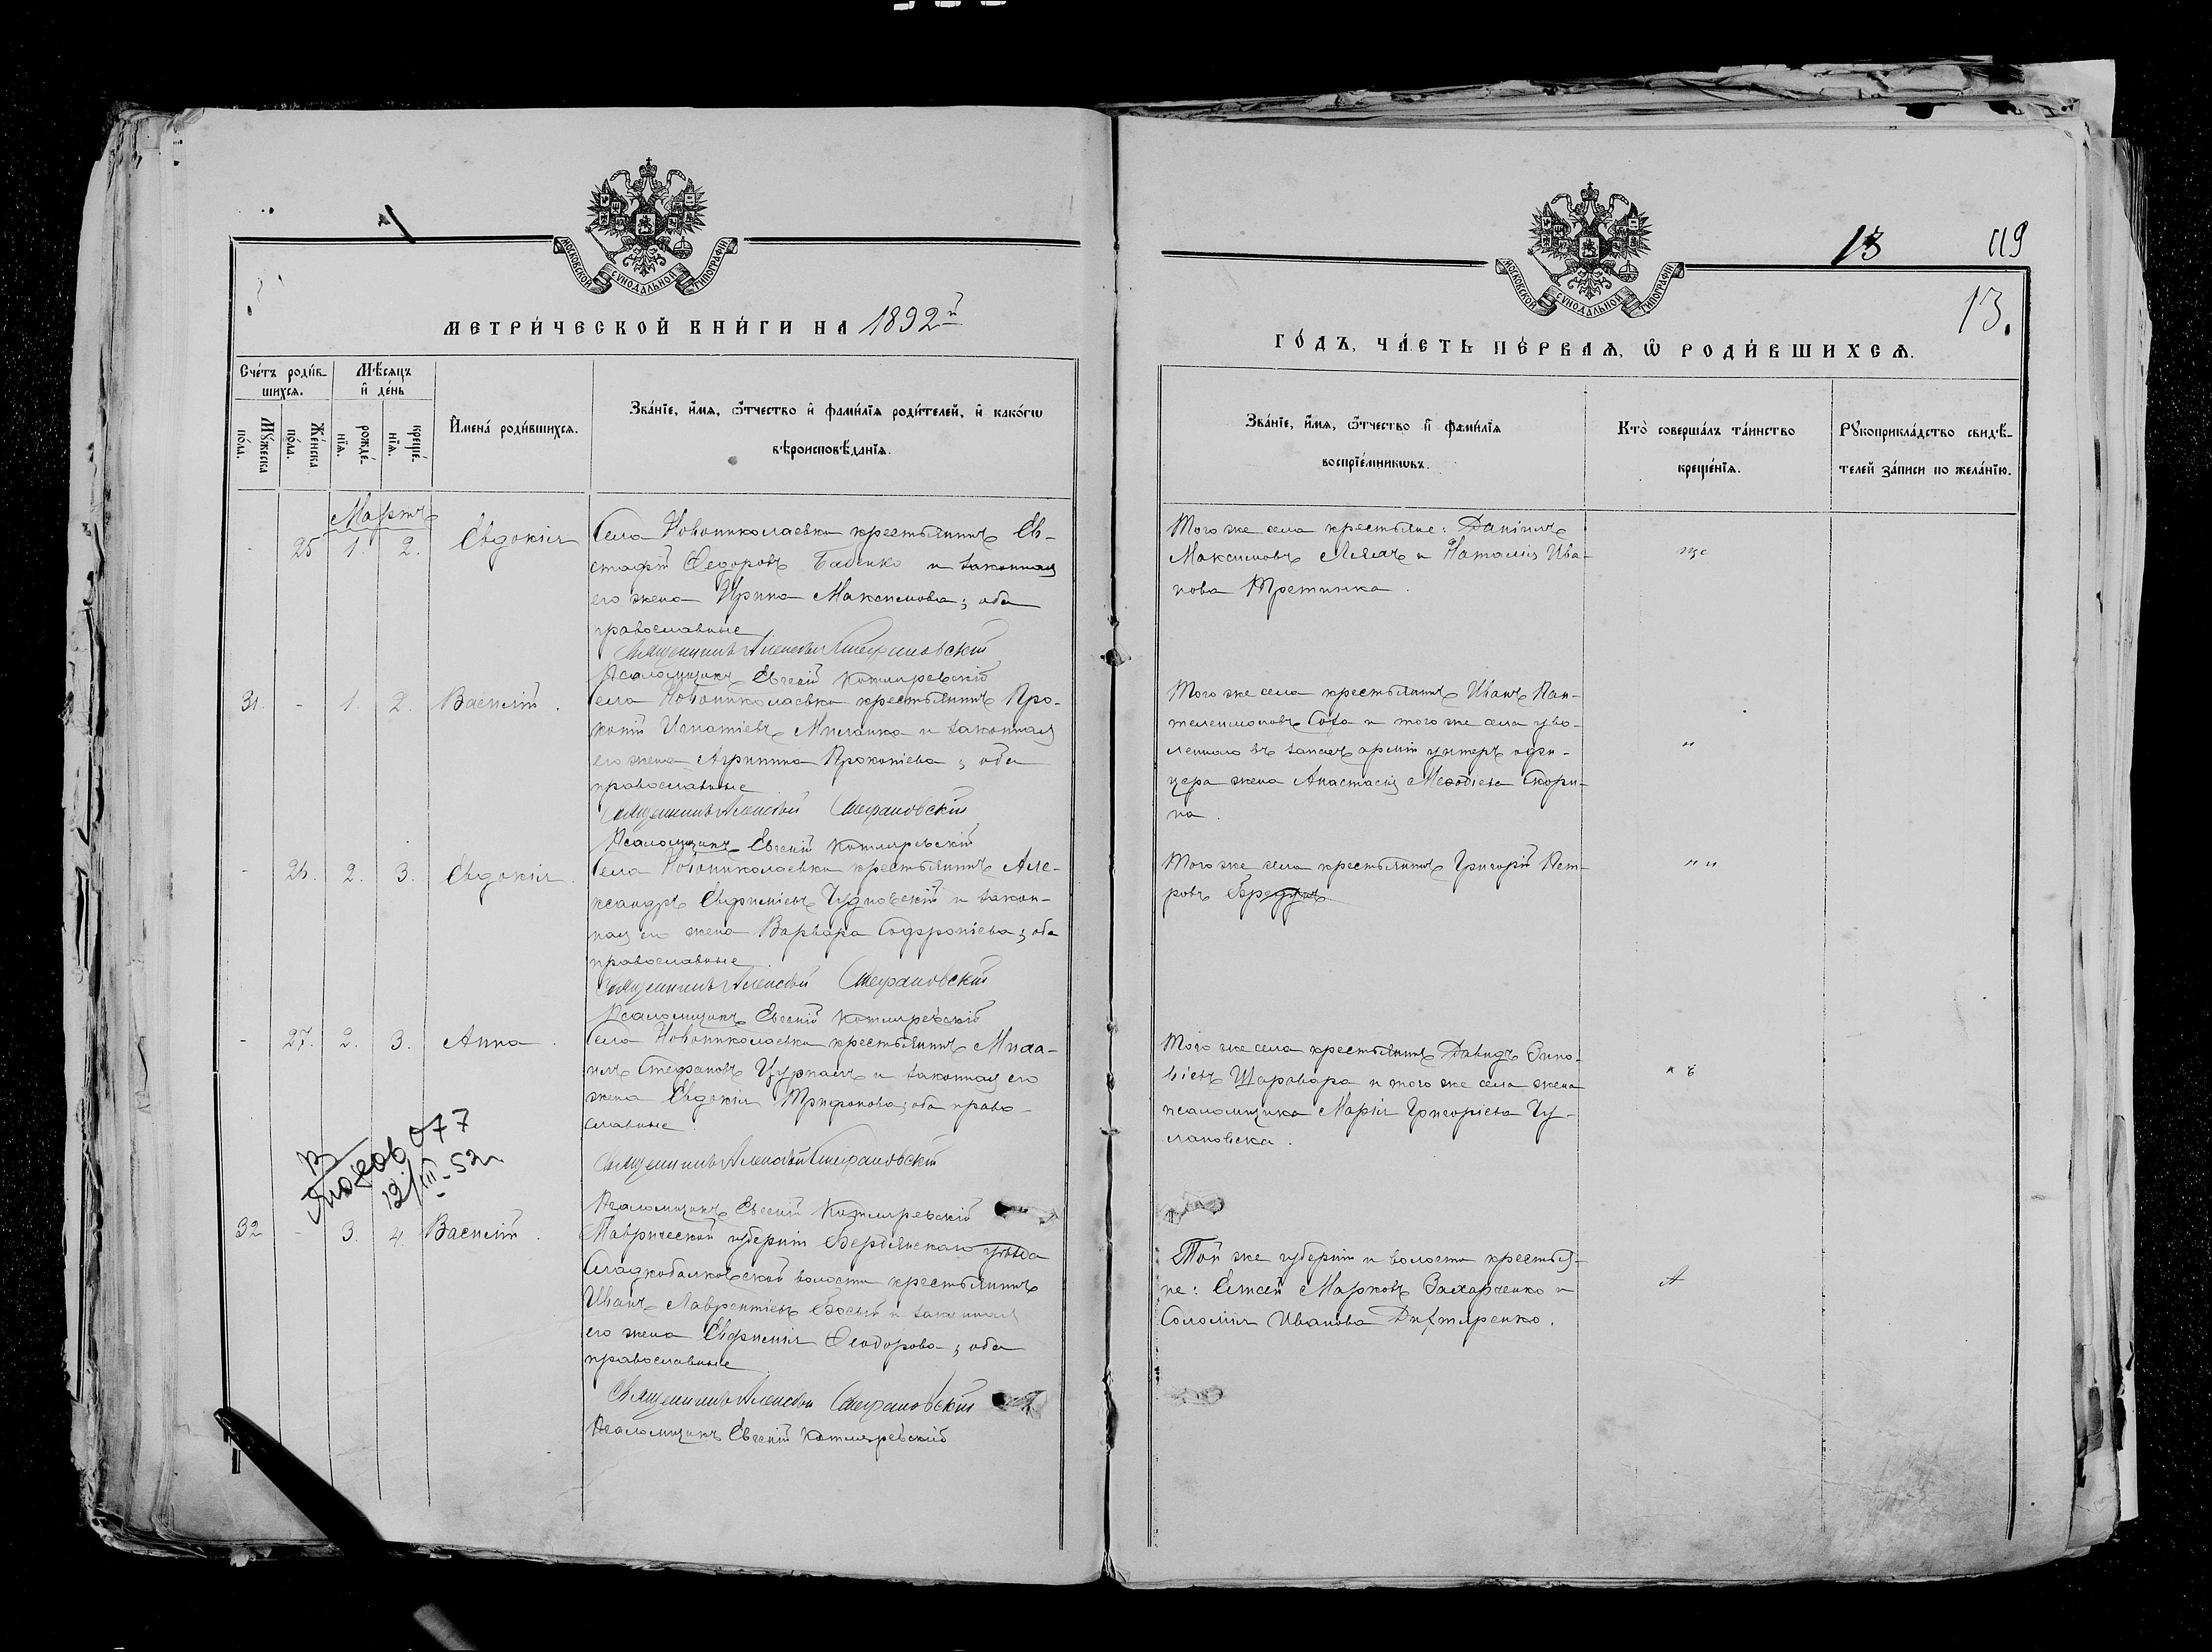 МОСКОВСКОЙ СѴНОДАЛЬНОЙ ТИПОГРАФІИ
МЕТРИ́ЧЕСКОЙ КНИ́ГИ НА 1892й
Сче́тъ роди́в-
шихся.
Мѣ́сяцъ
и҆ де́нь
Мꙋ́жеска
по́ла.
Же́нска
по́ла.
рожде́-
нїя.
креще́-
нїя.
И҆мена̀ роди́вшихся.
Зва́нїе, и҆́мя, ѻ҆́тчество и҆ фами́лїя роди́телей, и҆ како́гѡ
вѣроисповѣ́данїя.
Мартъ
- 25 1. 2. Евдокія
Села Новониколаевки крестьянинъ Ев-
стафій Ѳедоровъ Бабенко и законная
его жена Ирина Максимова; оба
православные
Священникъ Алексѣй Стефановскій
Псаломщикъ Евгеній Котляревскій
31. - 1. 2. Василій.
Села Новониколаевки крестьянинъ Про-
копій Игнатіевъ Миланка и законная
его жена Агрипина Прокопіева; оба
православные
Священникъ Алексѣй Стефановскій
Псаломщикъ Евгеній Котляревскій
- 26. 2. 3. Евдокія.
Села Новониколаевки крестьянинъ Але-
ксандръ Евфиміевъ Чудновскій и закон-
ная его жена Варвара Софроніева; оба
православные
Священникъ Алексѣй Стефановскій
Псаломщикъ Евгеній Котляревскій
- 27. 2. 3. Анна.
Села Новониколаевки крестьянинъ Миха-
илъ Стефановъ Цурканъ и законная его
жена Евдокія Трифонова; оба право-
славные
Священникъ Алексѣй Стефановскій
Псаломщикъ Евгеній Котляревскій
077
12/III-52
32 - 3. 4. Василій.
Таврической губерніи Бердянскаго уѣзда
Сладкобалковской волости крестьянинъ
Иванъ Лаврентіевъ Босый и законная
его жена Евфимія Ѳеодорова; оба
православные
Священникъ Алексѣй Стефановскій
Псаломщикъ Евгеній Котляревскій
13 119
13.
МОСКОВСКОЙ СѴНОДАЛЬНОЙ ТИПОГРАФІИ
ГО́ДЪ, ЧА́СТЬ ПЕ́РВАЯ, Ѡ҆ РОДИ́ВШИХСЯ.
Зва́нїе, и҆́мя, ѻ҆́тчество и҆ фами́лїя
воспрїе́мникѡвъ.
Кто̀ соверша́лъ та́инство
креще́нїя.
Рꙋкоприкла́дство свидѣ́-
телей за́писи по жела́нїю.
Того же села крестьяне: Даніилъ
Максимовъ Лялъ и Наталія Ива-
нова Третинка.
Того же села крестьянинъ Иванъ Пан-
телеимоновъ Сота и того же села уво-
леннаго въ запасъ арміи унтеръ офи-
цера жена Анастасія Меѳодіева Скори-
на.
"
Того же села крестьянинъ Григорій Пет-
ровъ
" "
Того же села крестьянинъ Давидъ Зино-
віевъ Шаровара и того же села жена
псаломщика Марія Григоріева Чу-
лановска.
Той же губерніи и волости крестья-
не: Елисей Марковъ Захарченко и
Соломія Иванова Дихтяренко.